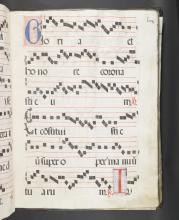 Glo ri a et
ho no re corona
sti e u m.
Et cōstitui sti
ū super o pe ra ma nuū
tu a ru m. I